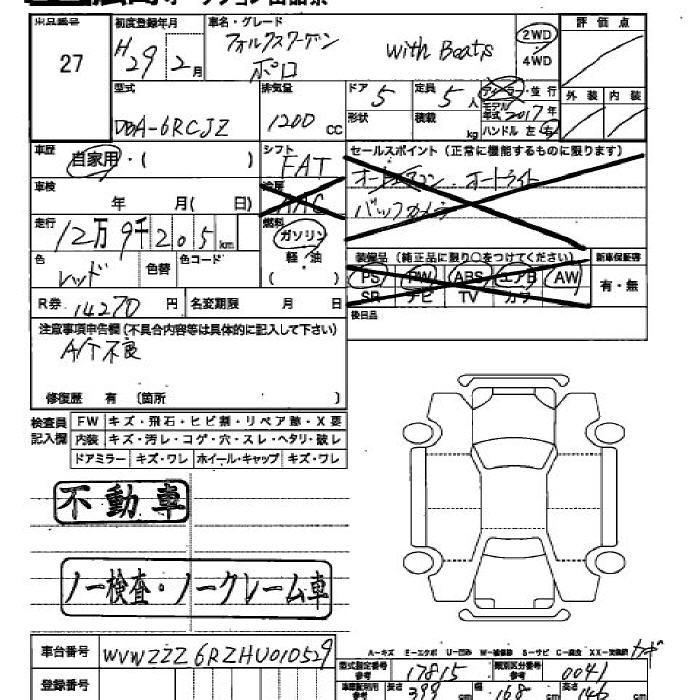 出品番号 初度登録年月 車名・グレード 評価点
27 H29 2月 フォルクスワーゲン ポロ with Beats 2WD 4WD
外装 内装
型式 排気量 ドア 5 定員 5人 ディーラー・並行
DBA-6RCJZ 1200 CC 形状 積載 kg モデル年式 2017年
ハンドル 左 右
車歴 自家用・( ) シフト FAT セールスポイント(正常に機能するものに限ります)
オートエアコン・オートライト
車検 年 月( 日) 冷房 AAC バックカメラ
走行 12万9千205km 燃料 ガソリン
色 レッド 色替 色コード 軽・油 ( ) 装備品(純正品に限り○をつけてください) 新車保証書
PS PW ABS エアB AW 有・無
SR ナビ TV カワ
R券 14270円 名変期限 月 日 後日品
注意事項申告欄(不具合内容等は具体的に記入して下さい)
A/T不良
修復歴 有 〔箇所 〕
検査員記入欄 FW キズ・飛石・ヒビ割・リペア跡・X要
内装 キズ・汚レ・コゲ・穴・スレ・ヘタリ・破レ
ドアミラー キズ・ワレ ホイール・キャップ キズ・ワレ
不動車
ノー検査・ノークレーム車
A-キズ E-エクボ U-凹み W-補修跡 S-サビ C-腐食
車台番号 WVWZZZ6RZHU010529
型式指定番号 参考 17815 類別区分番号 参考 0041
登録番号 長さ 399 cm 幅 168 cm 高さ 146